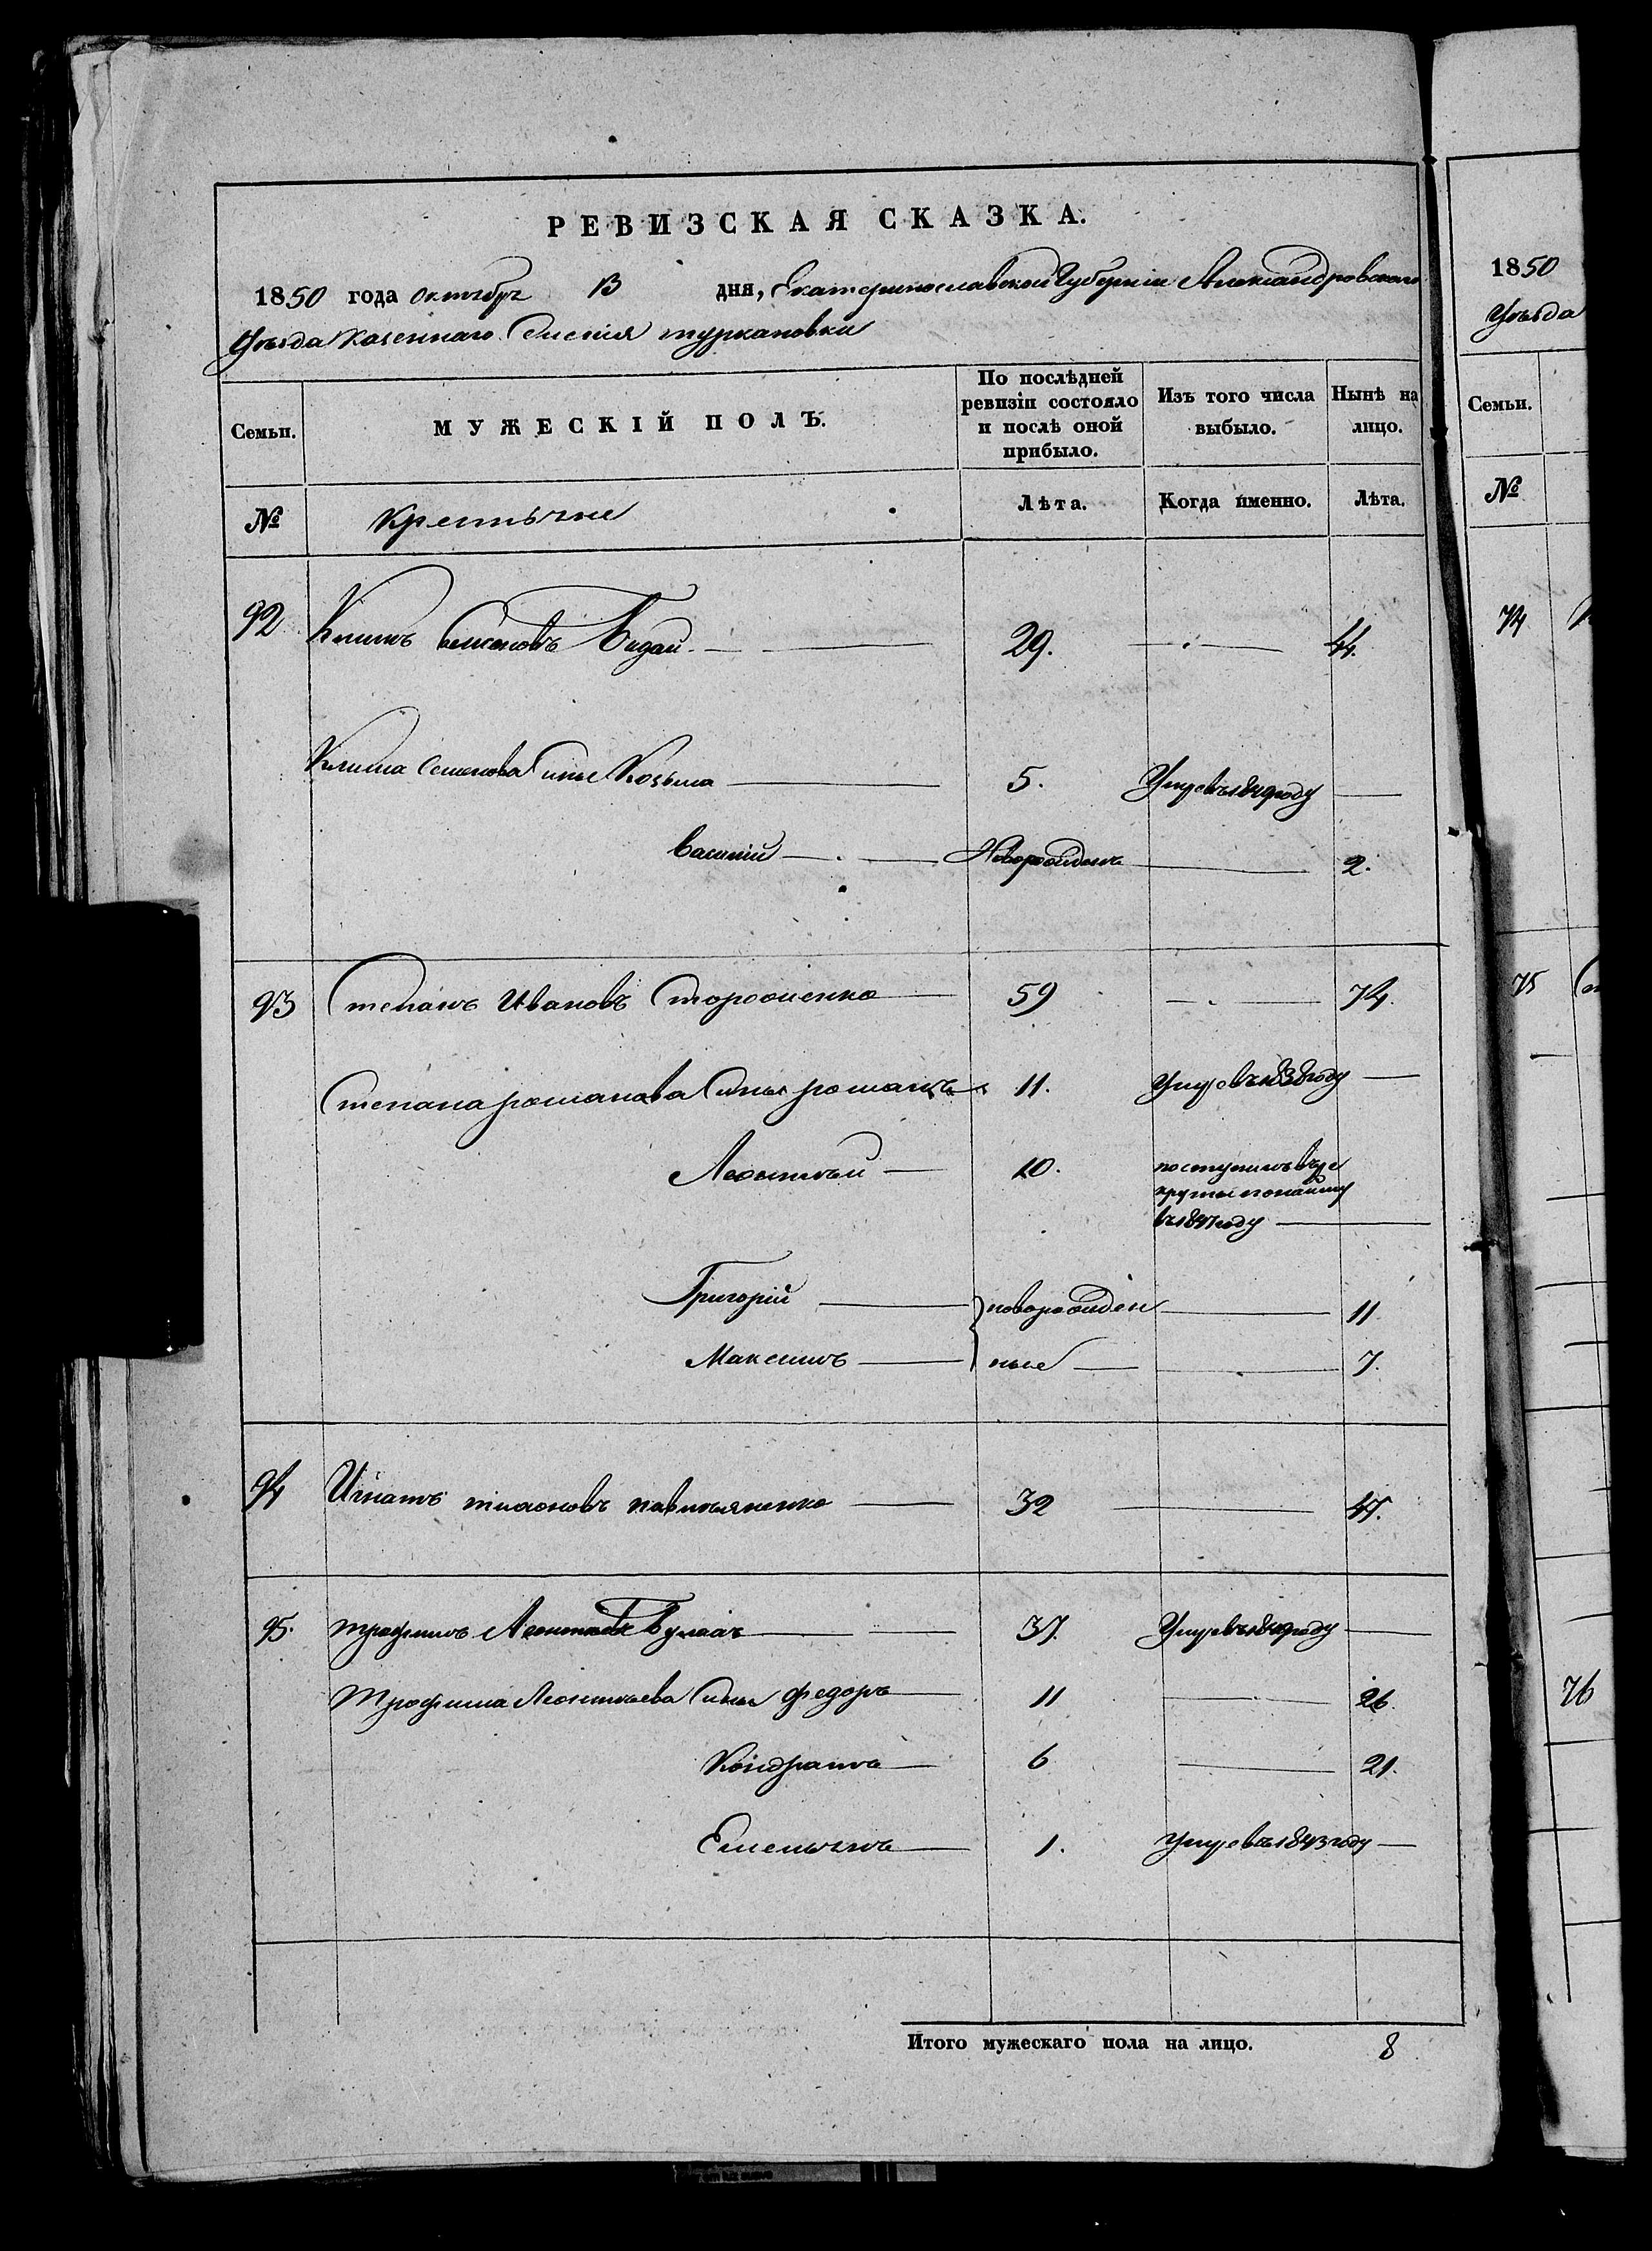 РЕВИЗСКАЯ СКАЗКА.
1850 года октября 13 дня, Екатеринославской Губерніи Александровскаго
Уѣзда казеннаго Селенія туркановки
Семьи. МУЖЕСКІЙ ПОЛЪ. По послѣдней ревизіи состояло и послѣ оной прибыло. Изъ того числа выбыло. Нынѣ на лицо.
№ Крестьяне Лѣта. Когда именно. Лѣта.
92 Климъ Семеновъ 29. 44.
Клима Семенова сынъ Козьма 5. Умре въ 1849 году
Василій Новорожденъ 2.
93 Степанъ Ивановъ Стороженко 59 74.
Степана романова сыны романъ 11. Умре въ 1838 году
Леонтьей 10. поступилъ въ ре
круты по найму
въ 1847 году
Григорій новорожден 11
Максимъ ные 7.
94 Игнатъ 32 47.
95. трофимъ Леонтьевъ 37. Умре въ 1849 году
Трофима Леонтьева сыны Федоръ 11 26.
Кондратъ 6 21.
Емельянъ 1. Умре въ 1843 году
Итого мужескаго пола на лицо. 8
1850
Уѣзда
Семьи.
№
74
75
76